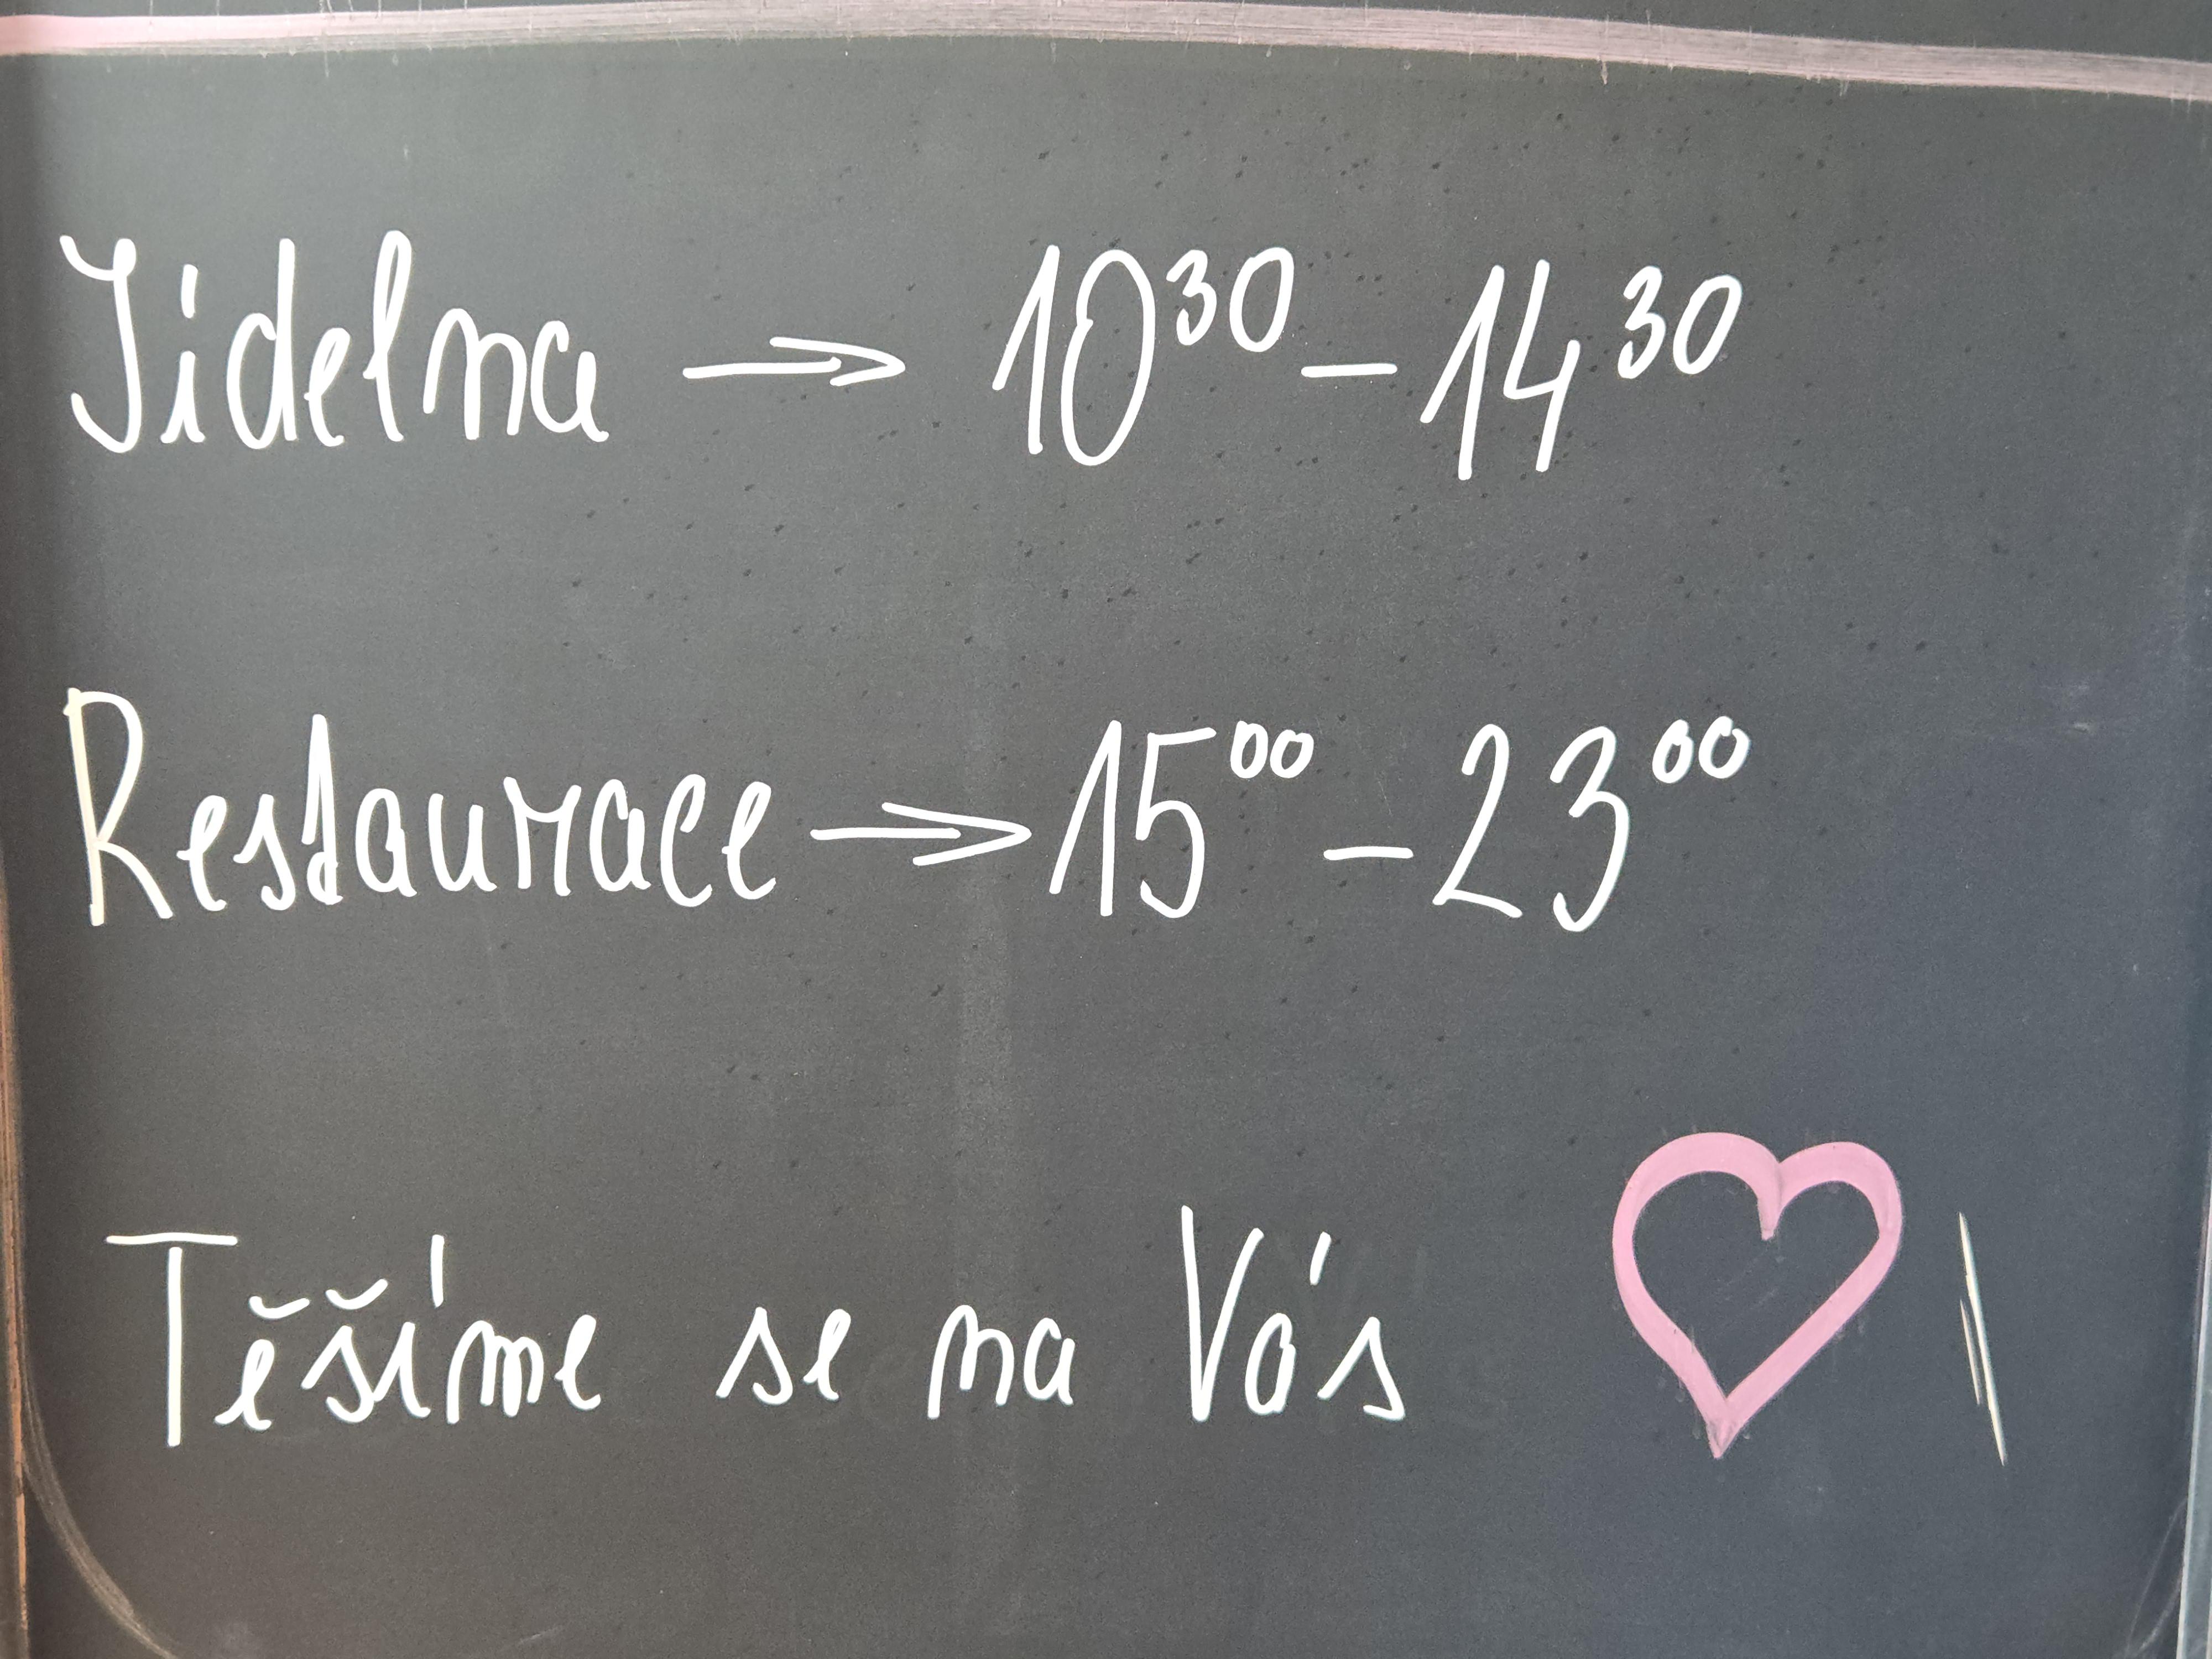 Jídelna → 10³⁰ – 14³⁰
Restaurace → 15⁰⁰ – 23⁰⁰
Těšíme se na Vás ♡